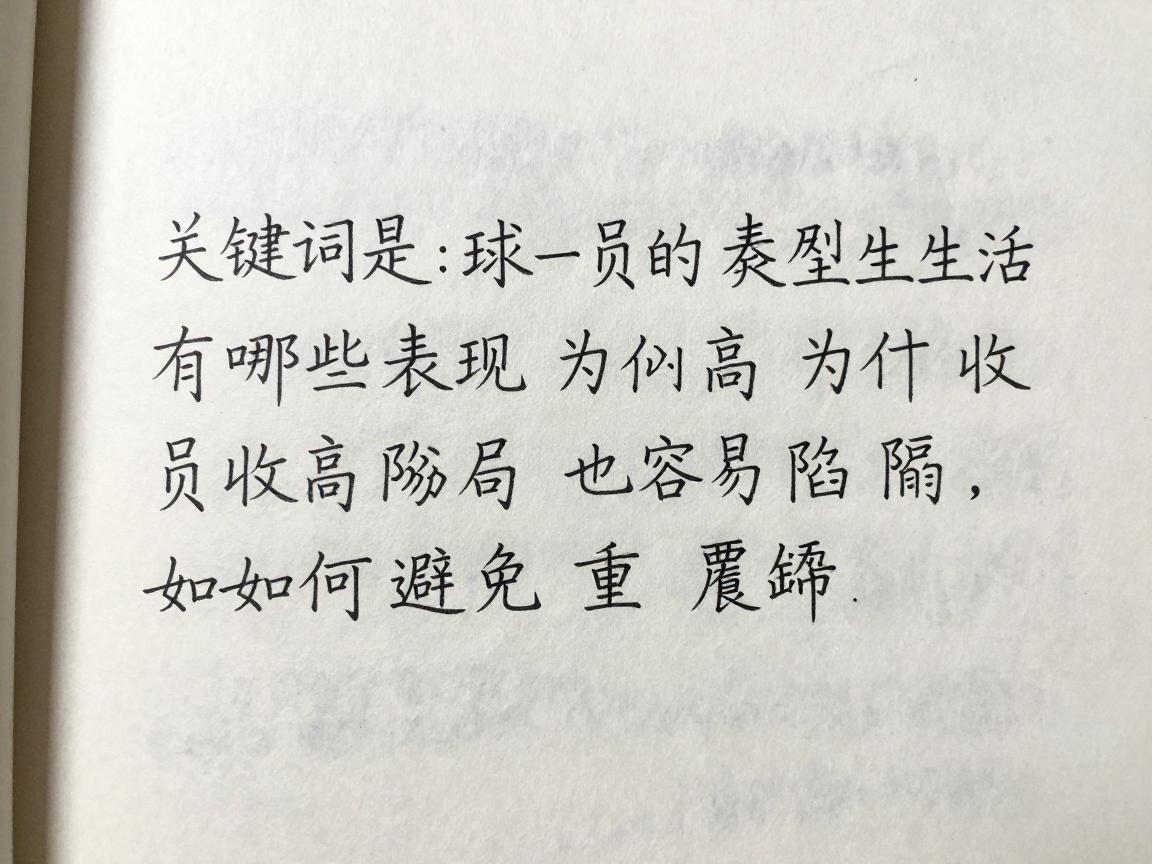 关键词是:球一员的 型生生活
有哪些表现 为 高 为什 收
员收高 局 也容易陷 ,
如如何避免 重